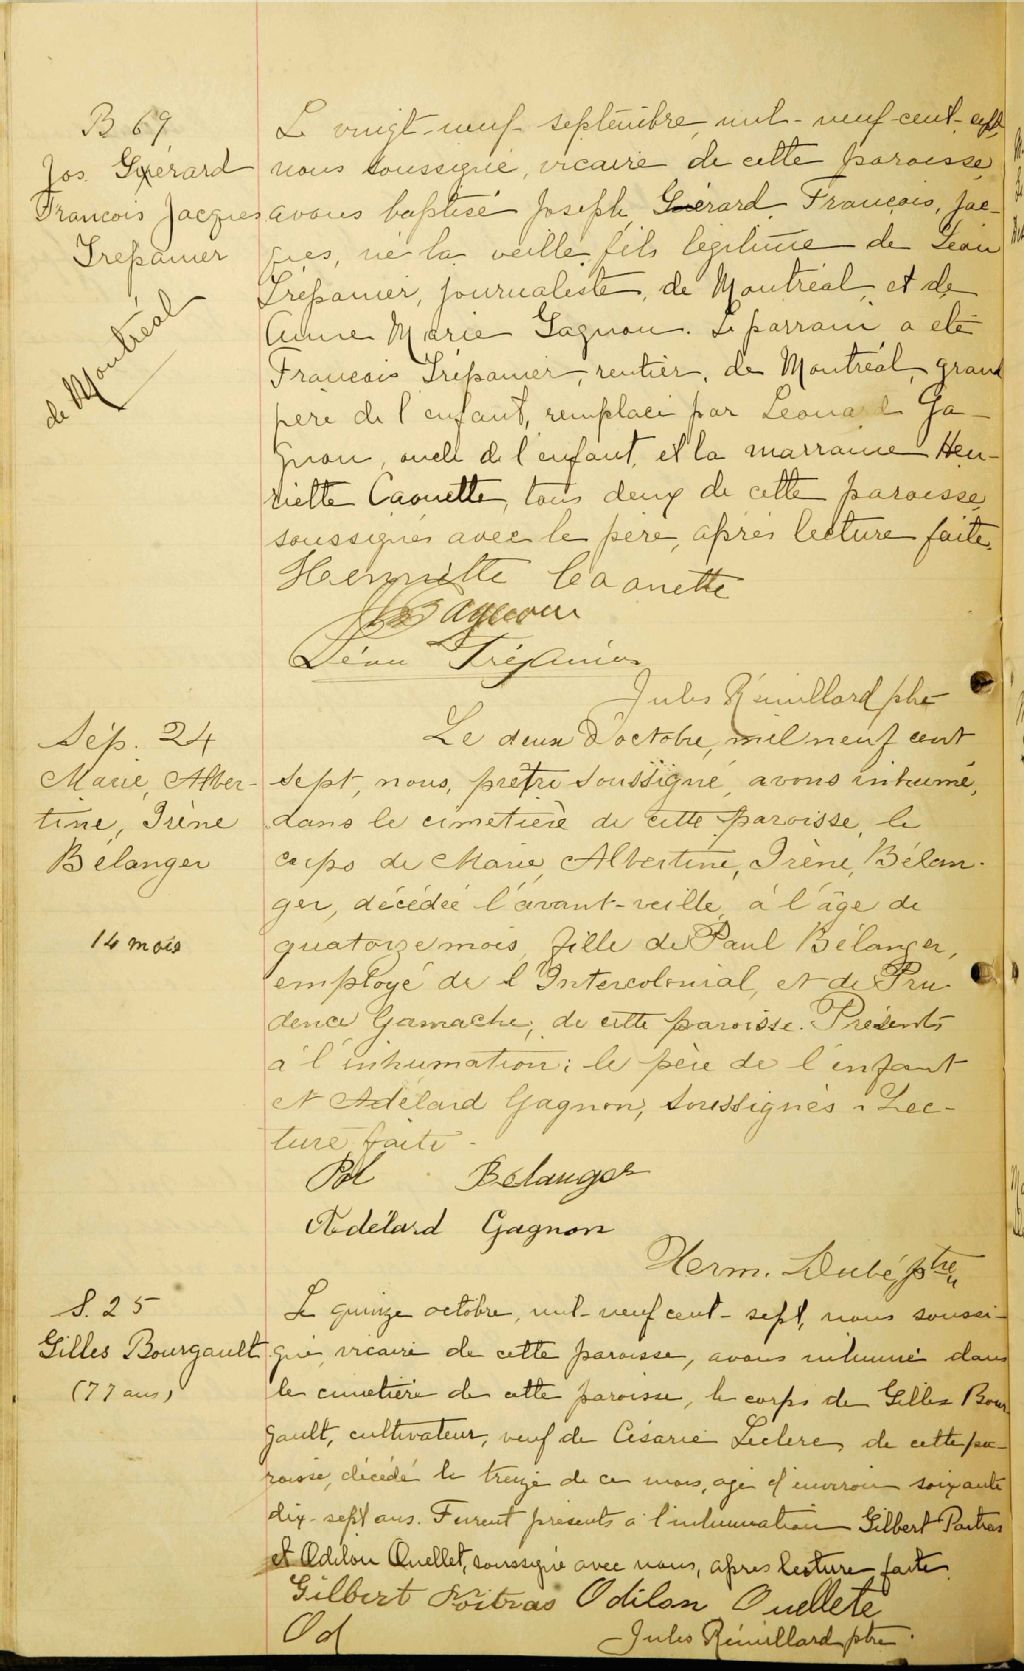 B 69
Jos. Guérard
François Jacques
Trépanier
de Montréal
Le vingt-neuf septembre, mil-neuf-cent-sept,
nous soussigné, vicaire de cette paroisse,
avons baptisé Joseph, Guérard, François, Jac-
ques, né la veille, fils légitime de Léon
Trépanier, journaliste, de Montréal, et de
Anna Marie Gagnon. Le parrain a été
François Trépanier, rentier, de Montréal, grand
père de l'enfant, remplacé par Léonard Ga-
gnon, oncle de l'enfant, et la marraine Hen-
riette Caouette, tous deux de cette paroisse,
soussignés avec le père, après lecture faite.
Henriette Caouette
Gagnon
Léon Trépanier
Jules Rémillard ptre
Sép. 24
Marie, Alber-
tine, Irène
Bélanger
14 mois
Le deux d'octobre, mil neuf cent
sept, nous, prêtre soussigné, avons inhumé,
dans le cimetière de cette paroisse, le
corps de Marie, Albertine, Irène, Bélan-
ger, décédée l'avant-veille, à l'âge de
quatorze mois, fille de Paul Bélanger,
employé de l'Intercolonial, et de Pru-
dence Gamache, de cette paroisse. Présents
à l'inhumation: le père de l'enfant
et Adélard Gagnon, soussignés. Lec-
ture faite.
Pol Bélanger
Adélard Gagnon
Herm. Dubé, ptre
S. 25
Gilles Bourgault
(77 ans)
Le quinze octobre, mil-neuf cent-sept, nous soussi-
gné, vicaire de cette paroisse, avons inhumé dans
le cimetière de cette paroisse, le corps de Gilles Bour-
gault, cultivateur, veuf de Césarie Leclerc, de cette pa-
roisse, décédé le treize de ce mois, agé d'environ soixante
dix-sept ans. Furent présents à l'inhumation Gilbert Poitras
et Odilon Ouellet, soussigné avec nous, après lecture faite.
Gilbert Poitras Odilon Ouellete
Od
Jules Rémillard ptre.